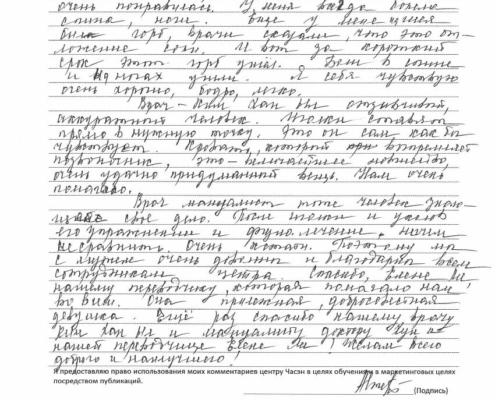 очень понравилась. У меня всегда болела
спина, ноги. Еще у меня на шее
был горб, врачи сказали, что это от-
ложение соли. И вот за короткий
срок этот горб ушёл. Боли в спине
и в ногах ушли. Я себя чувствую
очень хорошо, бодро, легко.
Врач - Ким Хан Ны отзывчивый,
аккуратный человек. Иголки ставит
прямо в нужную точку. Это он сам, как бы
чувствует. Кровать, которой выпрямляет
позвоночник, это - величайшее новшество,
очень удачно придуманная вещь. Нам очень
помогло.
Врач мануалист тоже человек знаю-
щий свое дело. После иголок и
его упражнения и физиолечение, ничем
не сравнить. Очень Поэтому мы
с мужем очень довольны и благодарны всем
сотрудникам центра. Спасибо, Елене
нашему переводчику, которая помогала нам
во всём. Она прилежная, добросовестная
девушка. Ещё раз спасибо нашему врачу
Ким Хан Ны и мануалисту доктору Чун и
нашей переводчице Елене Желаем всего
доброго и наилучшего!
Я предоставляю право использования моих комментариев центру Часэн в целях обучения, в маркетинговых целях
посредством публикаций.
(Подпись)